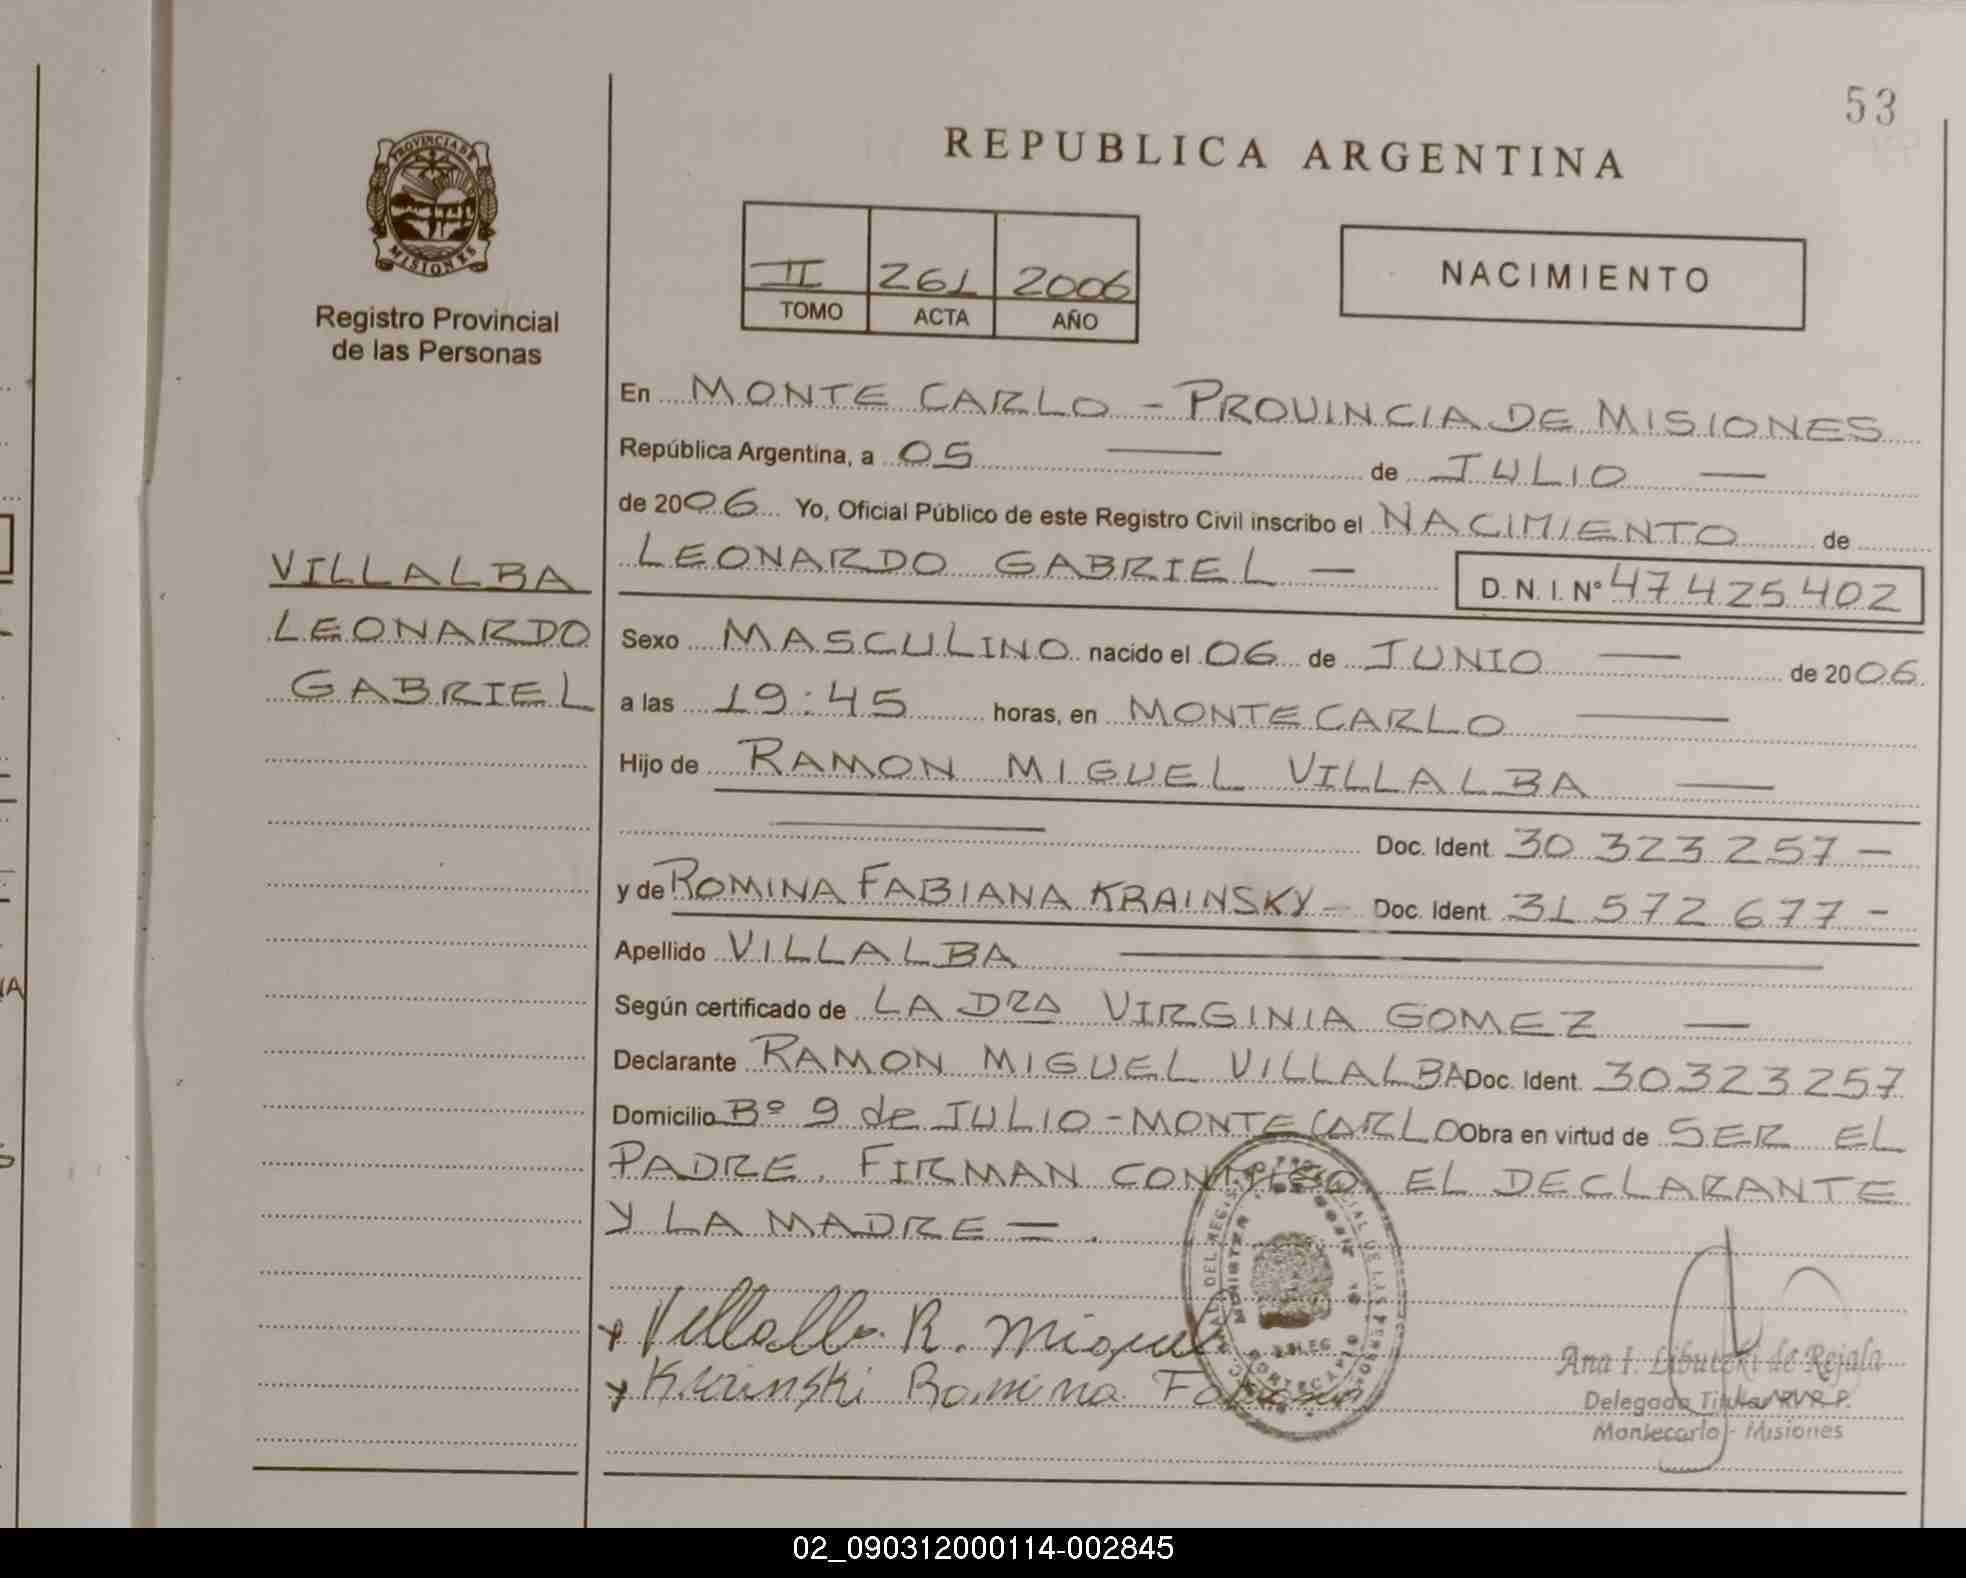 53
REPUBLICA ARGENTINA
PROVINCIA DE
MISIONES
Registro Provincial
de las Personas
II 261 2006
TOMO ACTA AÑO
NACIMIENTO
En MONTE CARLO - PROVINCIA DE MISIONES
República Argentina, a 05 — de JULIO —
de 2006 Yo, Oficial Público de este Registro Civil inscribo el NACIMIENTO de
LEONARDO GABRIEL — D. N. I. Nº 47 425 402
VILLALBA
LEONARDO
GABRIEL
Sexo MASCULINO nacido el 06 de JUNIO — de 2006
a las 19:45 horas, en MONTECARLO —
Hijo de RAMON MIGUEL VILLALBA —
— Doc. Ident. 30 323 257 -
y de ROMINA FABIANA KRAINSKY - Doc. Ident. 31 572 677 -
Apellido VILLALBA —
Según certificado de LA DRA VIRGINIA GOMEZ —
Declarante RAMON MIGUEL VILLALBA Doc. Ident. 30323257
Domicilio Bº 9 de JULIO - MONTECARLO Obra en virtud de SER EL
PADRE. FIRMAN CONMIGO EL DECLARANTE
Y LA MADRE — .
Villalba R. Miguel
Krainski Romina Fabiana
Ana I. de Rejala
Delegada Titular
Montecarlo - Misiones
02_090312000114-002845